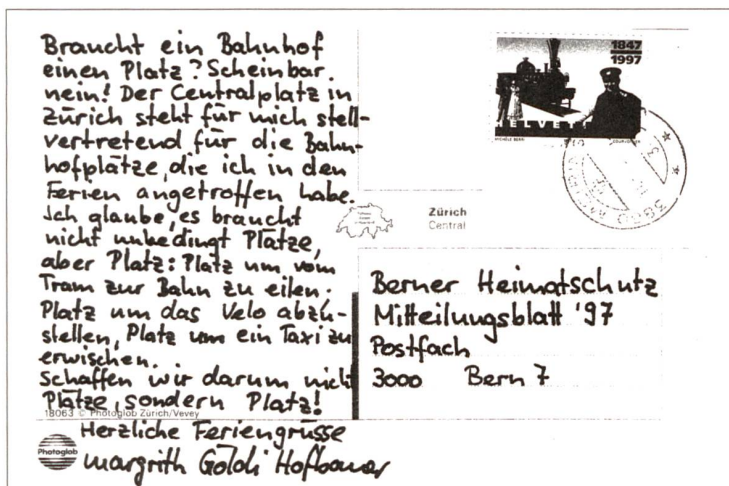 Braucht ein Bahnhof
einen Platz? Scheinbar
nein! Der Centralplatz in
Zürich steht für mich stell-
vertretend für die Bahn-
hofplätze, die ich in den
Ferien angetroffen habe.
Ich glaube, es braucht
nicht unbedingt Plätze,
aber Platz: Platz um vom
Tram zur Bahn zu eilen.
Platz um das Velo abzu-
stellen, Platz um ein Taxi zu
erwischen.
Schaffen wir darum nicht
Plätze, sondern Platz!
18063 © Photoglob Zürich/Vevey
Herzliche Feriengrüsse
Margrith Göldi Hofbauer
Photoglob
1847
1997
HELVETIA
Zürich
Central
Berner Heimatschutz
Mitteilungsblatt '97
Postfach
3000 Bern 7